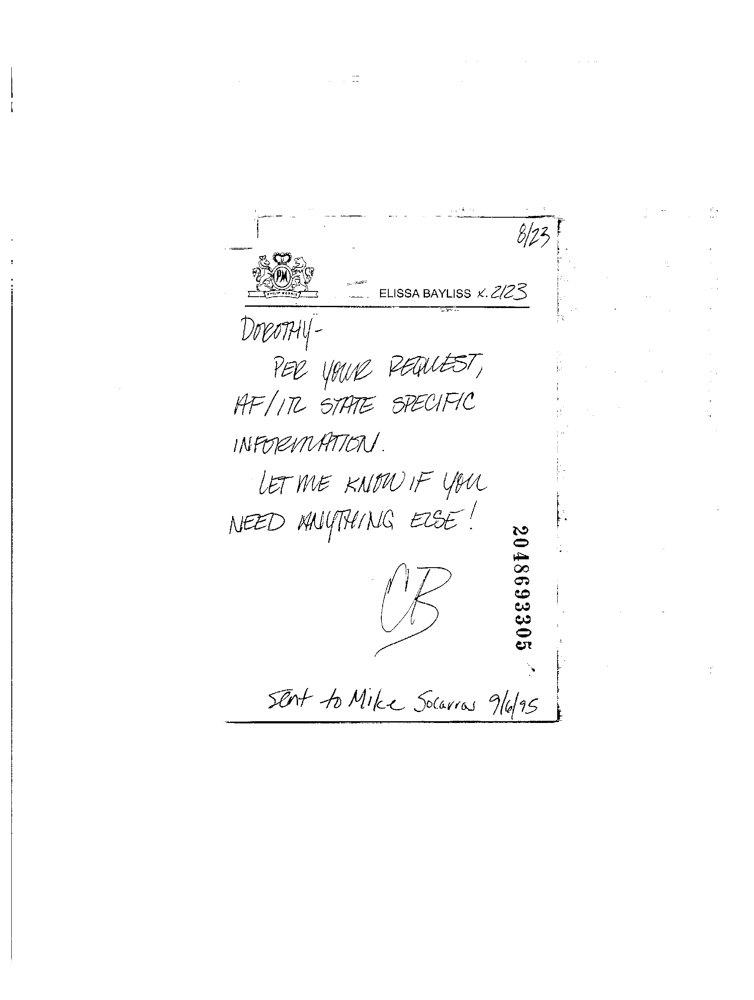 8/23
PM
PHILIP MORRIS
ELISSA BAYLISS x. 2123
DOROTHY-
PER YOUR REQUEST,
AF/ITL STATE SPECIFIC
INFORMATION.
LET ME KNOW IF YOU
NEED ANYTHING ELSE!
CB
2048693305
Sent to Mike Socarras 9/6/95